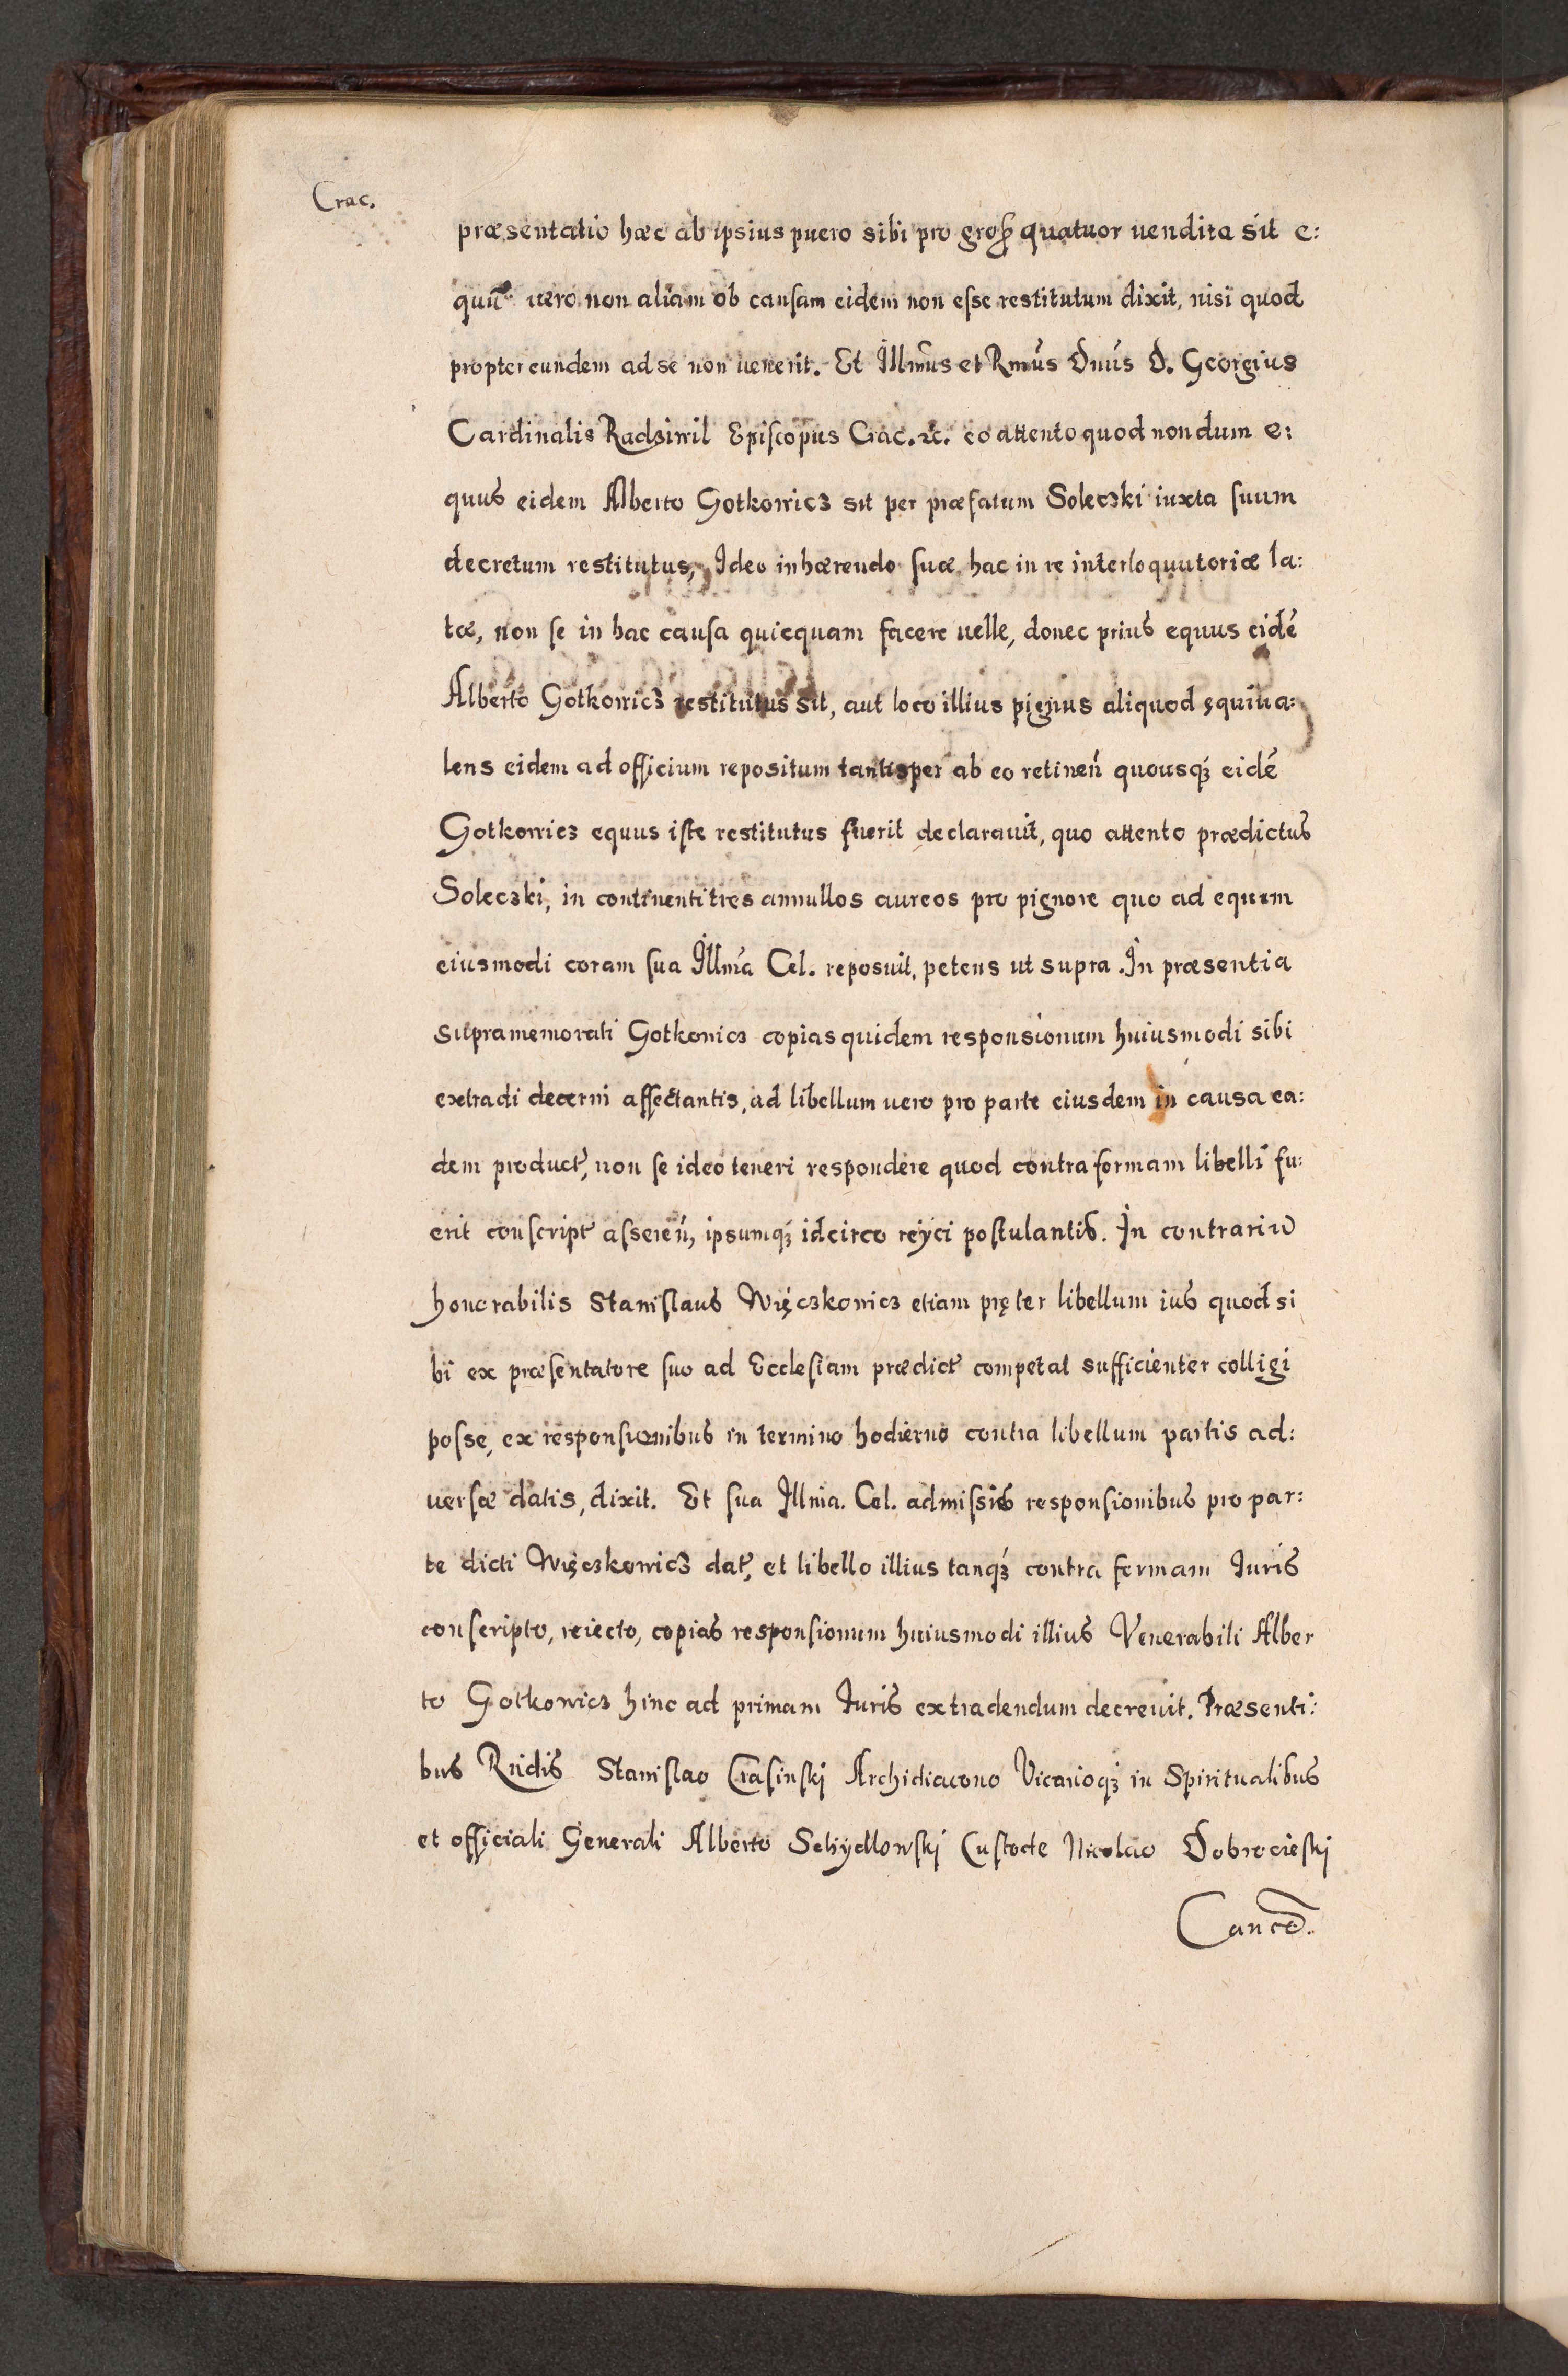 Crac.
præsentatio hæc ab ipsius puero sibi pro groß quatuor uendita sit e:
quũ uero non aliam ob causam eidem non esse restitutum dixit, nisi quod
propter eundem ad se non uenerit. Et Illmus et Rmus Dnus D. Georgius
Cardinalis Radziwil Episcopus Crac. &c. eo attento quod nondum e:
quus eidem Alberto Gotkowicz sit per præfatum Soleczki iuxta suum
decretum restitutus, Ideo inhærendo suæ hac in re interloquutoriæ la:
tæ, non se in hac causa quicquam facere uelle, donec prius equus eidẽ
Alberto Gotkowicz restitutus sit, aut loco illius pignus aliquod ęquiua:
lens eidem ad officium repositum tantisper ab eo retineñ quousqȝ eidẽ
Gotkowicz equus iste restitutus fuerit declarauit, quo attento prædictus
Soleczki, in continenti tres annullos aureos pro pignore quo ad equum
eiusmodi coram sua Illma Cel. reposuit, petens ut supra. In præsentia
supramemorati Gotkowicz copias quidem responsionum huiusmodi sibi
extradi decerni affectantis, ad libellum uero pro parte eiusdem in causa ea:
dem product, non se ideo teneri respondere quod contra formam libelli fu:
erit conscript assereñ, ipsumqȝ idcirco reÿci postulantis. In contrariũ
honorabilis Stanislaus Więczkowicz etiam pręter libellum ius quod si
bi ex præsentatore suo ad Ecclesiam prædict competat sufficienter colligi
posse, ex responsionibus in termino hodierno contra libellum partis ad:
uersæ datis, dixit. Et sua Illma. Cel. admissis responsionibus pro par:
te dicti Więczkowicz dat, et libello illius tanqȝ contra formam Iuris
conscripto, reiecto, copias responsionum huiusmodi illius Venerabili Alber
to Gotkowicz hinc ad primam Iuris extradendum decreuit. Præsenti:
bus Rndis Stanislao Crasinskj Archidiacono Vicarioqȝ in Spiritualibus
et officiali Generali Alberto Schydlowskj Custode Nicolao Dobrocieskj
Cance.